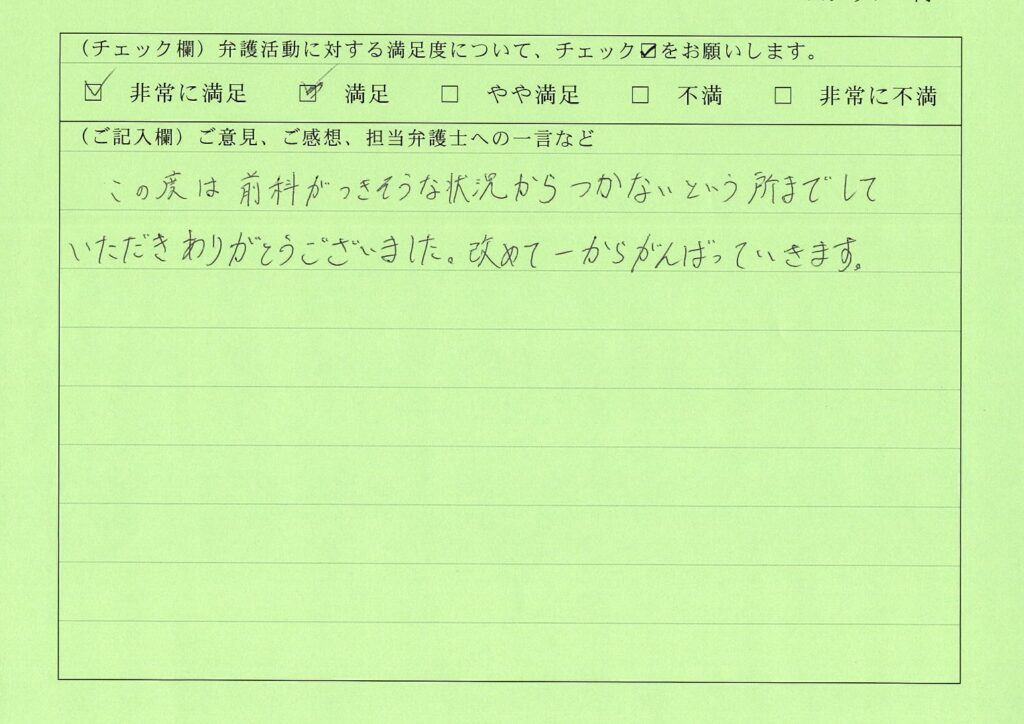 (チェック欄)弁護活動に対する満足度について、チェック☑をお願いします。
☑ 非常に満足 ☑ 満足 □ やや満足 □ 不満 □ 非常に不満
(ご記入欄)ご意見、ご感想、担当弁護士への一言など
この度は前科がつきそうな状況からつかないという所までして
いただきありがとうございました。改めて一からがんばっていきます。